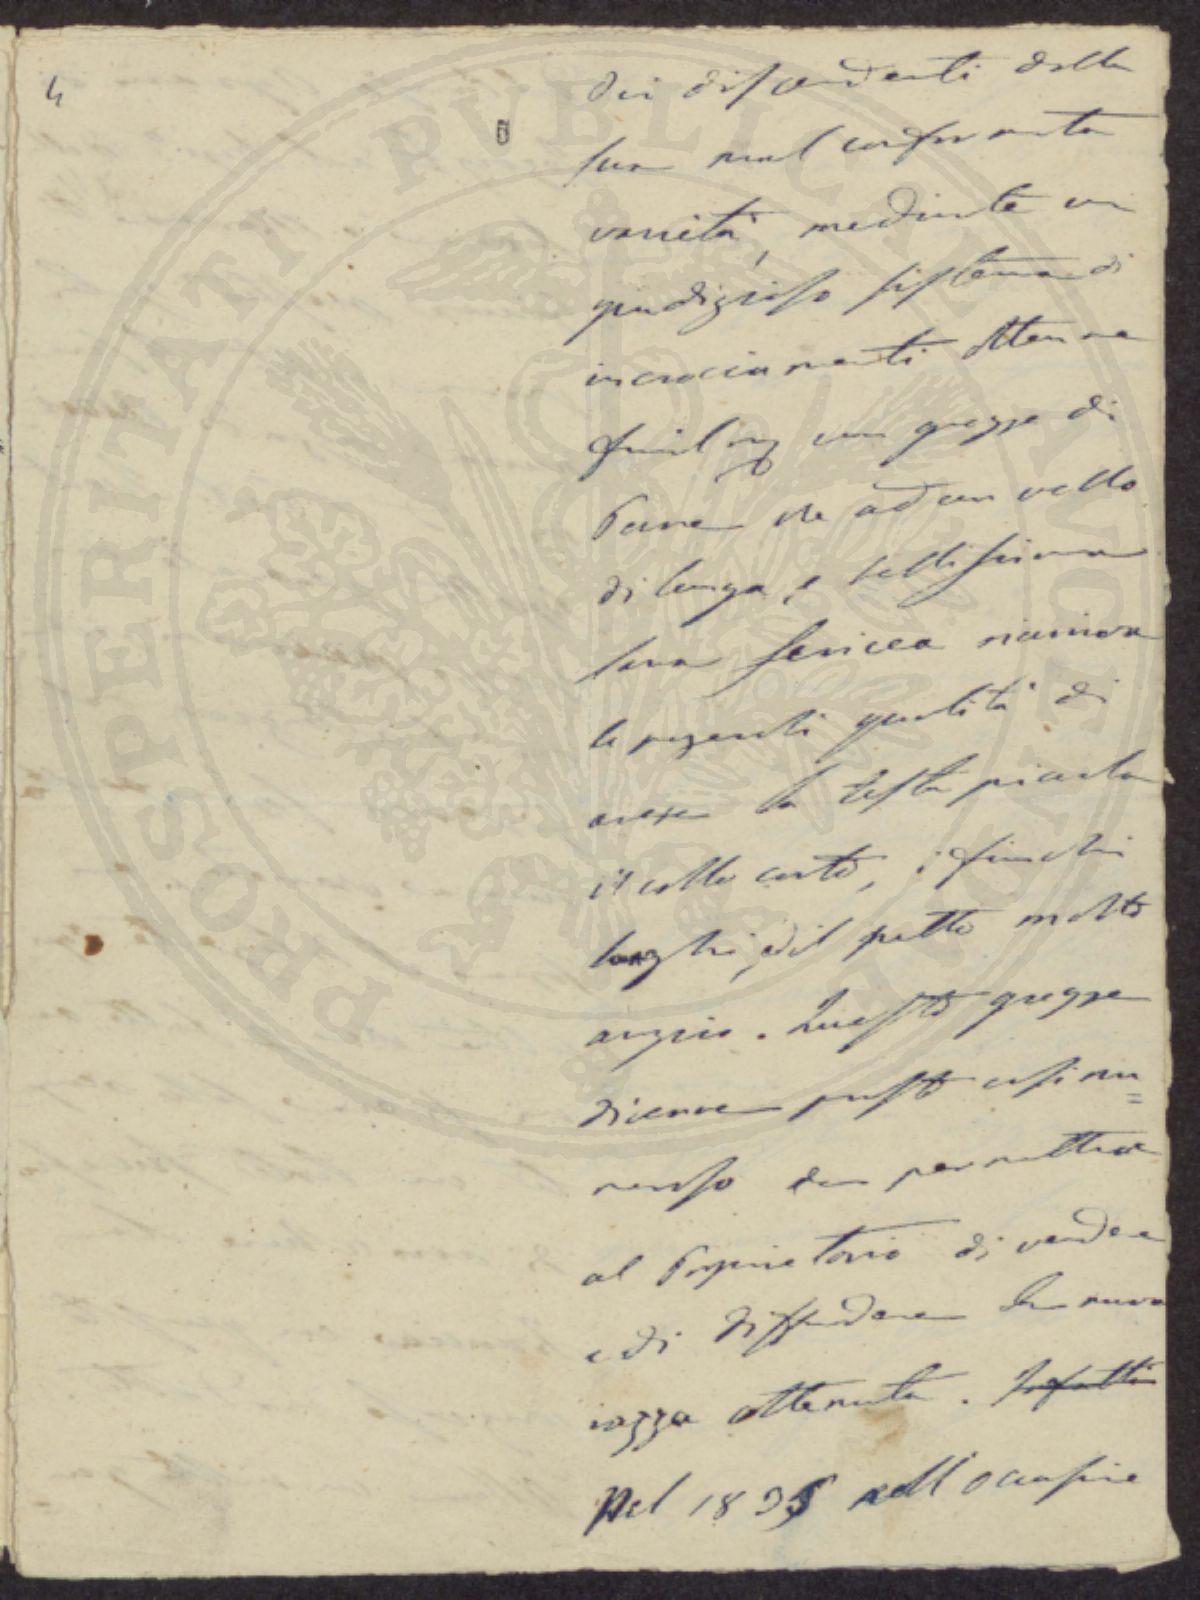 4
dei discendenti della
sua mal conformata
varietà, mediante un
giudizioso sistema di
incrociamenti ottenne
un gregge di
Pecore che ad un vello
di lunga, e bellissima
lana sericea riuniva
le qualità di
avere la testa piccola
il collo corto, i fianchi
larghi, ed il petto molto
ampio. Questo gregge
divenne presto così nu=
meroso da permettere
al Proprietario di vendere
e di diffondere la nuova
razza ottenuta. Infatti
Nel 1835 nell'occasione
PROSPERITATI PUBLICAE AUGENDAE